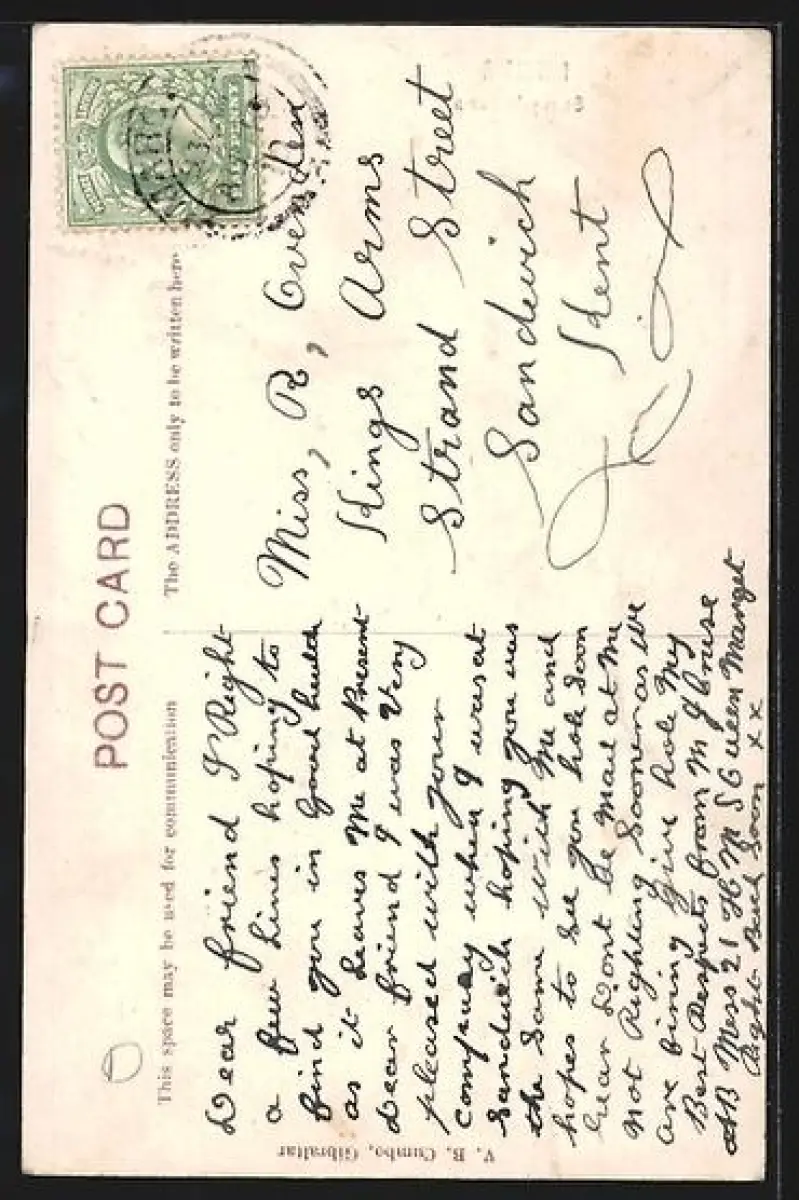 POST CARD
This space may be used for communication
The ADDRESS only to be written here
HALFPENNY
Dear friend I Right
a few lines hoping to
find you in Good health
as it leaves Me at Present
Dear friend I was Very
pleased with your
company when I was at
Sandwich hoping you was
the Same with Me and
hopes to see you hole soon
Dear Dont be Mad at Me
not Righting Sooner as we
are
Give hole My
Best Respects from M J Cruse
AB Mess 21 H M S Queen
Right Back Soon x x
Miss, R, Ovenden
Kings Arms
Strand Street
Sandwich
Kent
V. B. Cumbo, Gibraltar